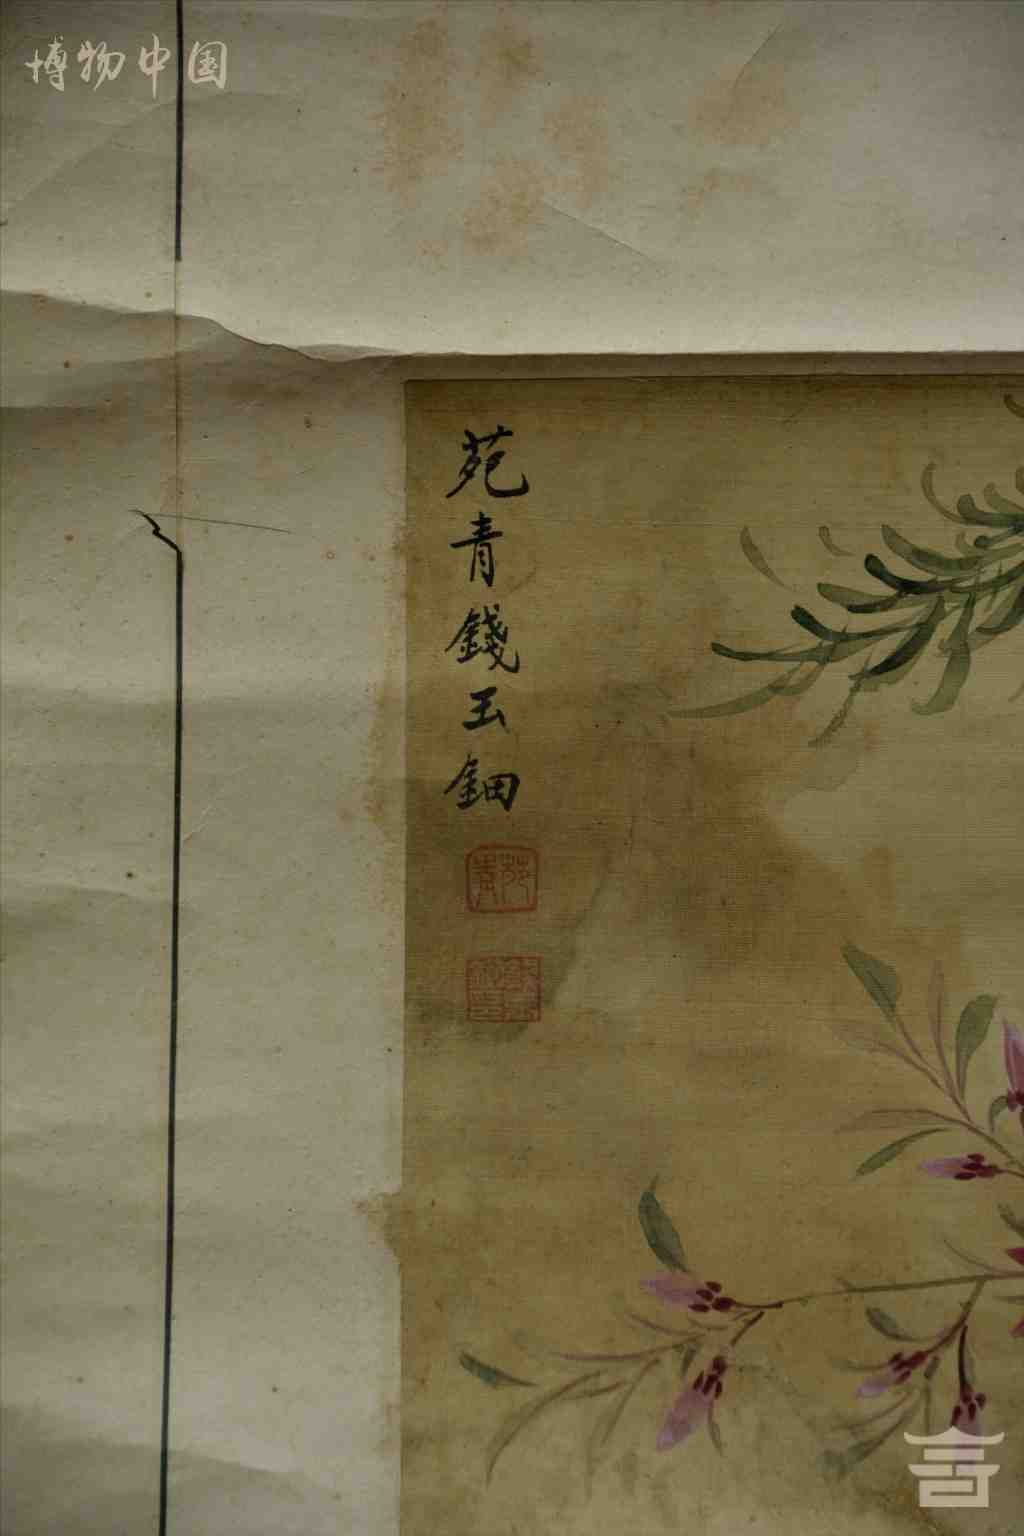 博物中国
苑青錢玉鈿
苑青